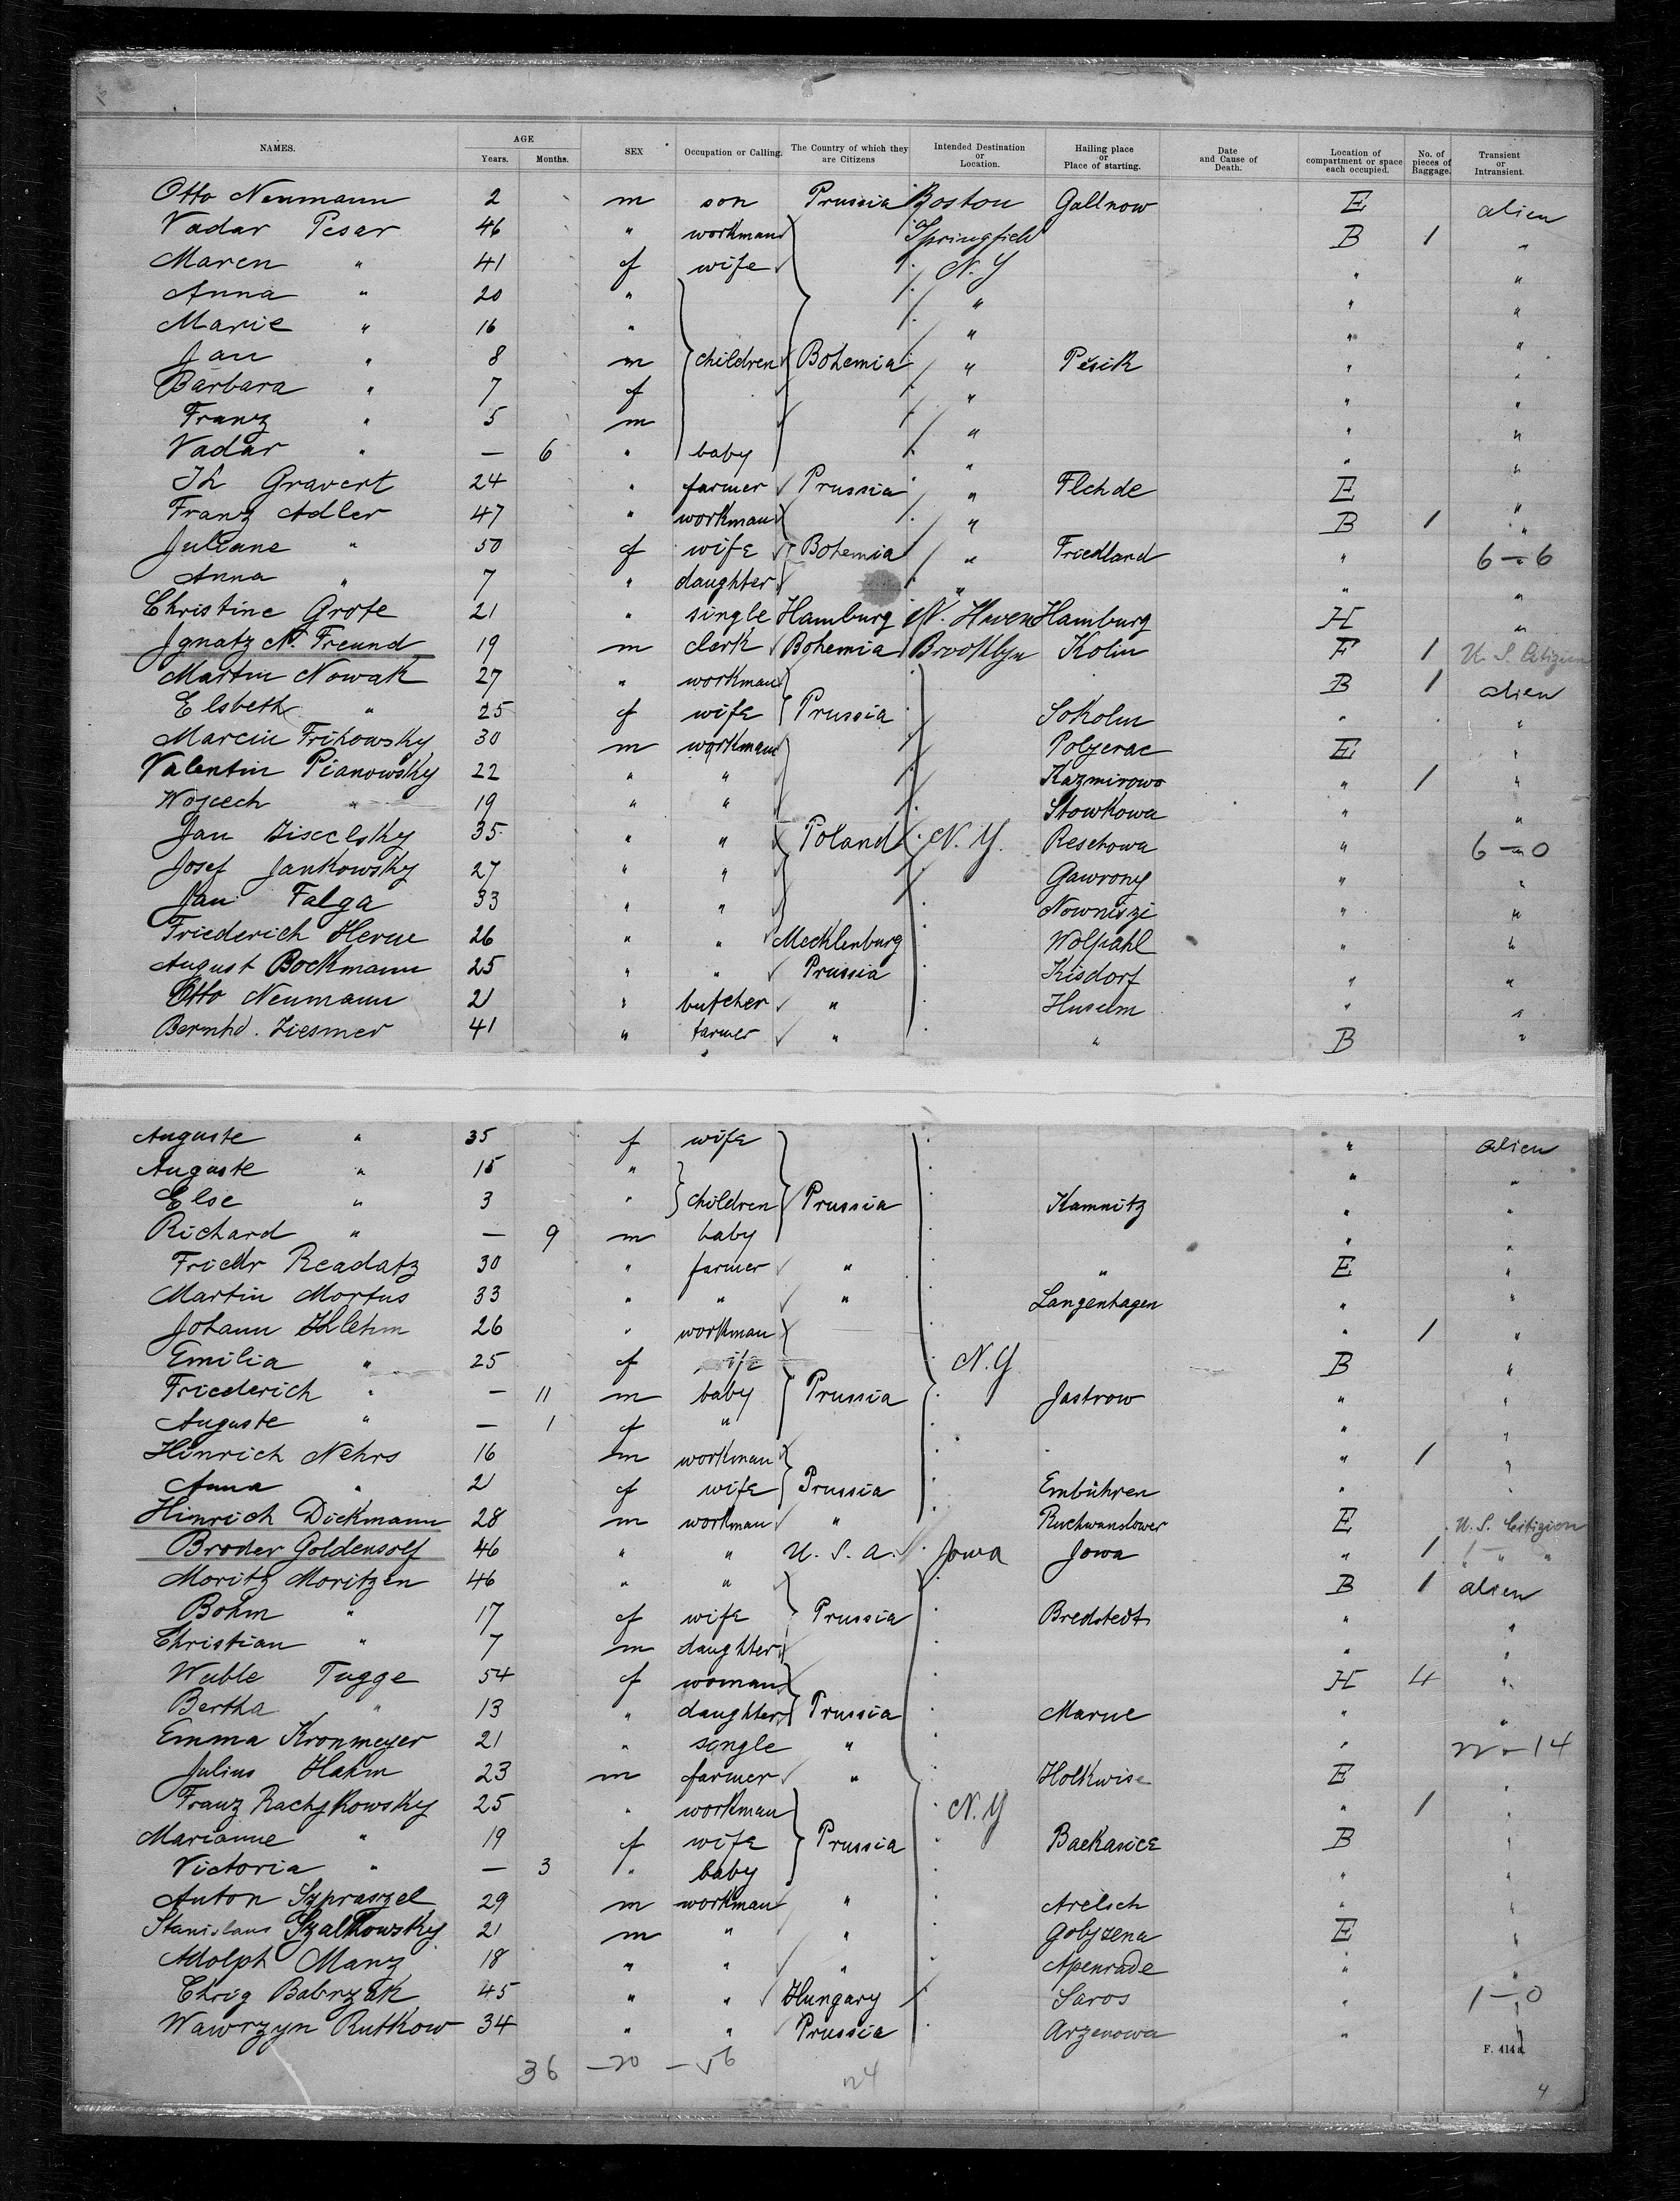 NAMES. AGE SEX Occupation or Calling. The Country of which they are Citizens Intended Destination or Location. Hailing place or Place of starting. Date and Cause of Death. Location of compartment or space each occupied. No. of pieces of Baggage. Transient or Intransient.
Years. Months.
Otto Neumann 2 m son Prussia Boston Gallnow E alien
Vadar Pesar 46 " workman Springfield B 1 "
Maren " 41 f wife N.Y " "
Anna " 20 " " " "
Marie " 16 " " " "
Jan " 8 m children Bohemia " Pěsik " "
Barbara " 7 f " " "
Franz " 5 m " " "
Vadar " — 6 " baby " " "
Th Gravert 24 " farmer Prussia " Flehde E "
Franz Adler 47 " workman " B 1 "
Juliane " 50 f wife Bohemia " Friedland " 6-6
Anna " 7 " daughter " " "
Christine Grote 21 " single Hamburg N. Haven Hamburg H "
Ignatz N. Freund 19 m clerk Bohemia Brooklyn Kolin F 1 U.S. Citizen
Martin Nowak 27 " workman B 1 alien
Elsbeth " 25 f wife Prussia Sokolm " "
Marcin Frihowsky 30 m workman Polzerac E "
Valentin Pianowsky 22 " " Kazmirowo " 1 "
Wojcech " 19 " " Stowkowa " "
Jan Ziscelsky 35 " " Poland N.Y. Reschowa " 6-0
Josef Jankowsky 27 " " Gawrony " "
Jan Falga 33 " " Nowniszi " "
Friederich Herue 26 " " Mecklenburg Wolpahl " "
August Bockmann 25 " " Prussia Kisdorf " "
Otto Neumann 21 " butcher " Husum " "
Bernhd. Ziesmer 41 " farmer " " B "
Auguste " 35 f wife " alien
Auguste " 15 " " "
Else " 3 " children Prussia Kamnitz " "
Richard " — 9 m baby " "
Friedr Readatz 30 " farmer " " E "
Martin Mortus 33 " " " Langenhagen " "
Johann Khlehm 26 " workman " 1 "
Emilia " 25 f wife N.Y B "
Friederich " — 11 m baby Prussia Jastrow " "
Auguste " — 1 f " " "
Hinrich Nehrs 16 m workman " 1 "
Anna " 21 f wife Prussia Embühren " "
Hinrich Dickmann 28 m workman " E U.S. Citizen
Broder Goldensolf 46 " " U.S.A. Iowa Iowa " 1 " " "
Moritz Moritzen 46 " " B 1 alien
Bohm " 17 f wife Prussia Bredstedt " "
Christian " 7 m daughter " "
Wuble Tagge 54 f woman H 4 "
Bertha " 13 " daughter Prussia Marne " "
Emma Kronmeyer 21 " single " " 22-14
Julius Hahm 23 m farmer " Holkwise E "
Franz Rachykowsky 25 " workman N.Y " 1 "
Marianne " 19 f wife Prussia Backasice B "
Victoria " — 3 " baby " "
Anton Szpraszel 29 m workman " Arelsch " "
Stanislaus Szalkowsky 21 m " " Gobzena E "
Adolph Manz 18 " " " Apenrade " "
Chrig Babrzak 45 " " Hungary Saros " 1-0
Wawrzyn Rutkow 34 " " Prussia Arzenowa "
F. 414
36 —20 —56 24
4